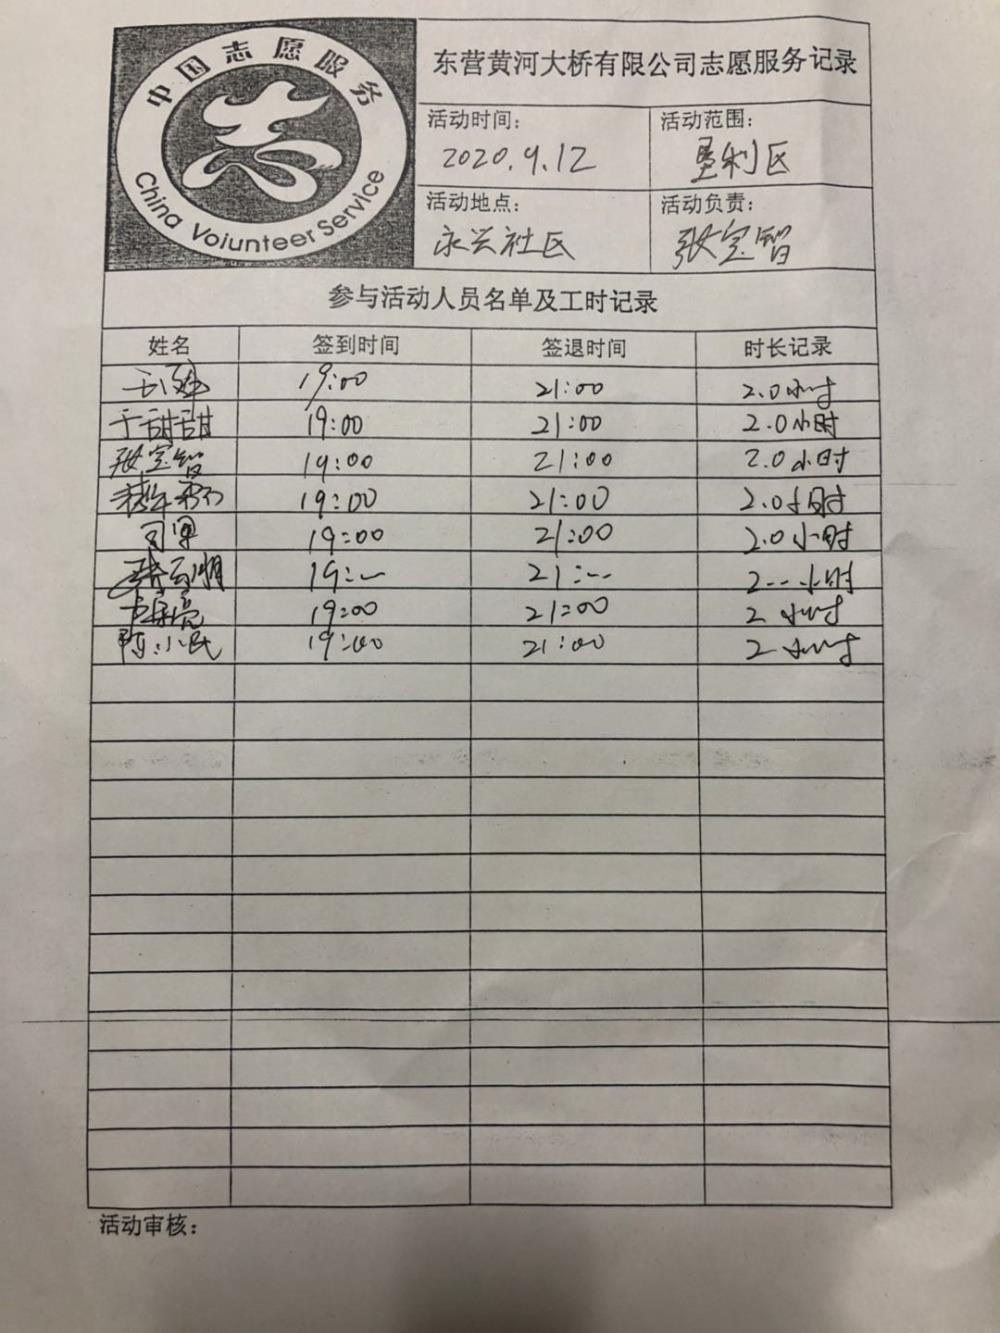 中国志愿服务
China Voiunteer Service
东营黄河大桥有限公司志愿服务记录
活动时间： 活动范围：
2020.9.12 垦利区
活动地点： 活动负责：
永兴社区 张宝智
参与活动人员名单及工时记录
姓名 签到时间 签退时间 时长记录
19:00 21:00 2.0小时
于甜甜 19:00 21:00 2.0小时
张宝智 19:00 21:00 2.0小时
19:00 21:00 2.0小时
19:00 21:00 2.0小时
19: 21: 2 小时
19:00 21:00 2 小时
陈小民 19:00 21:00 2 小时
活动审核：